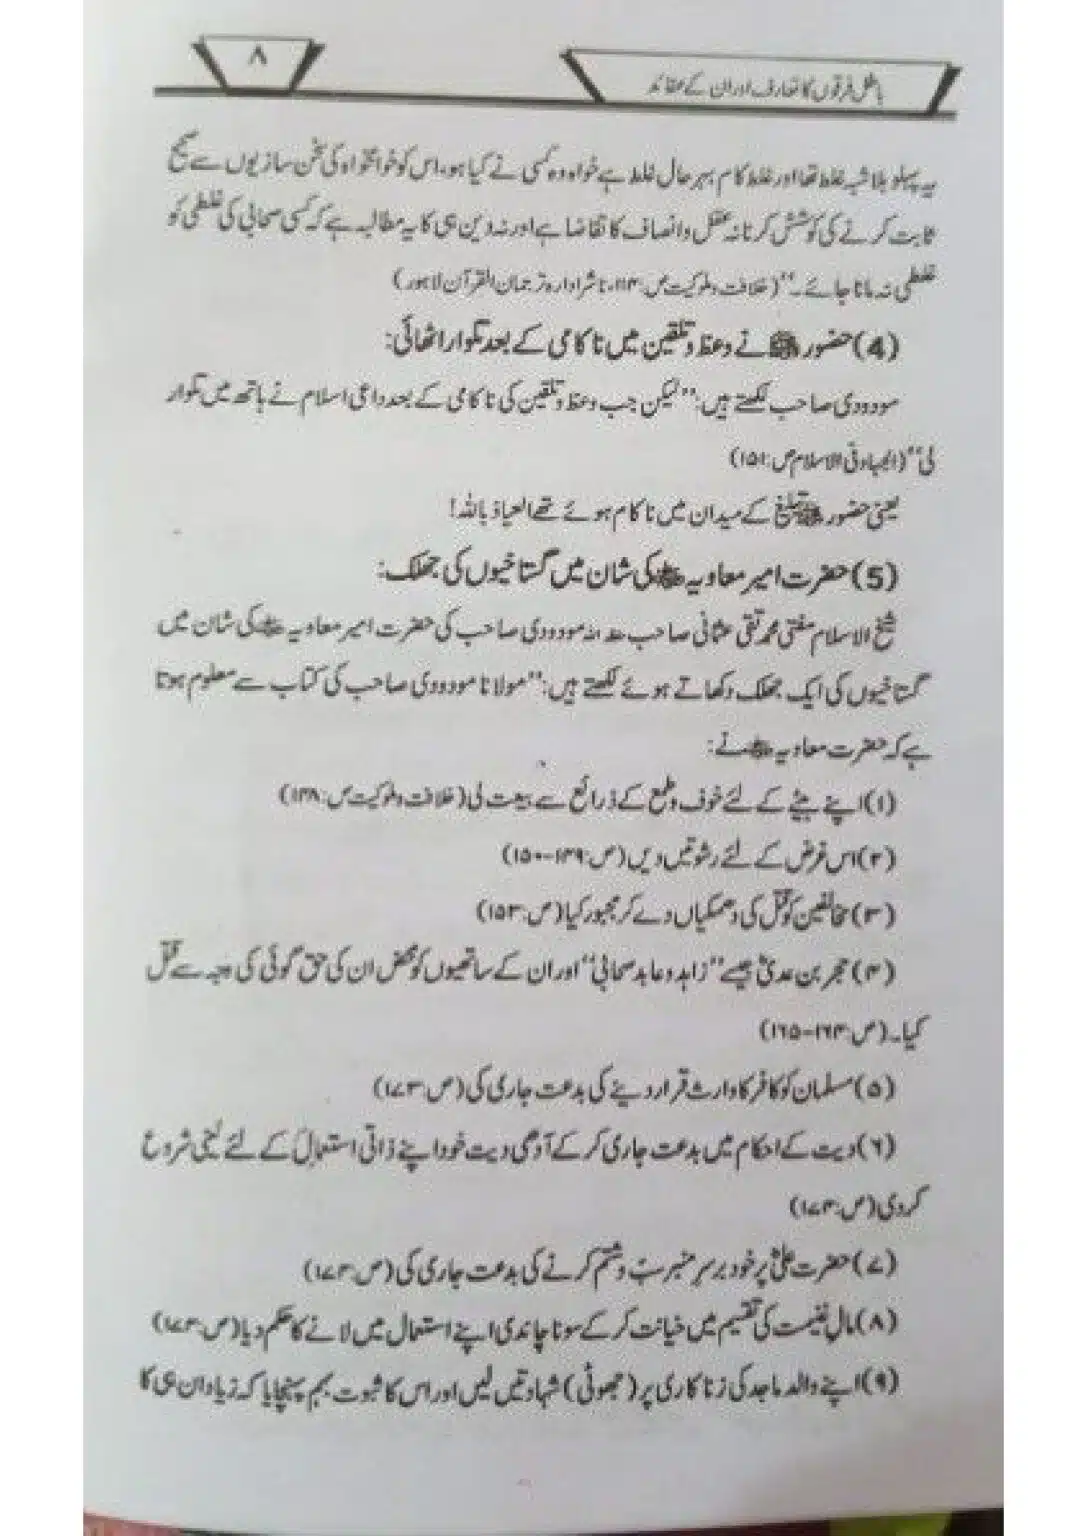 باطل فرقوں کا تعارف اور ان کے عقائد
۸
یہ پہلو بلا شبہ غلط تھا اور غلط کام بہر حال غلط ہے خواہ وہ کسی نے کیا ہو، اس کو خواہ مخواہ کی سخن سازیوں سے صحیح
ثابت کرنے کی کوشش کرنا نہ عقل و انصاف کا تقاضا ہے اور نہ دین ہی کا یہ مطالبہ ہے کہ کسی صحابی کی غلطی کو
غلطی نہ مانا جائے۔‘‘ (خلافت و ملوکیت ص:۱۱۳، ناشر ادارہ ترجمان القرآن لاہور)
(4) حضور ﷺ نے وعظ و تلقین میں ناکامی کے بعد تلوار اٹھائی:
مودودی صاحب لکھتے ہیں: ’’لیکن جب وعظ و تلقین کی ناکامی کے بعد داعی اسلام نے ہاتھ میں تلوار
لی‘‘ (الجہاد فی الاسلام ص:۱۵۱)
یعنی حضور ﷺ تبلیغ کے میدان میں ناکام ہوئے تھے العیاذ باللہ!
(5) حضرت امیر معاویہ ؓ کی شان میں گستاخیوں کی جھلک:
شیخ الاسلام مفتی محمد تقی عثمانی صاحب مودودی صاحب کی حضرت امیر معاویہ ؓ کی شان میں
گستاخیوں کی ایک جھلک دکھاتے ہوئے لکھتے ہیں: ’’مولانا مودودی صاحب کی کتاب سے معلوم ہوتا
ہے کہ حضرت معاویہ ؓ نے:
(۱) اپنے بیٹے کے لئے خوف و طمع کے ذرائع سے بیعت لی (خلافت و ملوکیت ص:۱۴۸)
(۲) اس غرض کے لئے رشوتیں دیں (ص:۱۴۹-۱۵۰)
(۳) مخالفین کو قتل کی دھمکیاں دے کر مجبور کیا (ص:۱۵۳)
(۴) حجر بن عدیؓ جیسے ’’زاہد و عابد صحابی‘‘ اور ان کے ساتھیوں کو محض ان کی حق گوئی کی وجہ سے قتل
کیا۔ (ص:۱۶۴-۱۶۵)
(۵) مسلمان کو کافر کا وارث قرار دینے کی بدعت جاری کی (ص:۱۷۳)
(۶) دیت کے احکام میں بدعت جاری کر کے آدھی دیت خود اپنے ذاتی استعمال کے لئے لینی شروع
کردی (ص:۱۷۳)
(۷) حضرت علیؓ پر خود برسر منبر سب و شتم کرنے کی بدعت جاری کی (ص:۱۷۴)
(۸) مال غنیمت کی تقسیم میں خیانت کر کے سونا چاندی اپنے استعمال میں لانے کا حکم دیا (ص:۱۷۴)
(۹) اپنے والد ماجد کی زنا کاری پر (جھوٹی) شہادتیں لیں اور اس کا ثبوت بہم پہنچایا کہ زیاد ان ہی کا